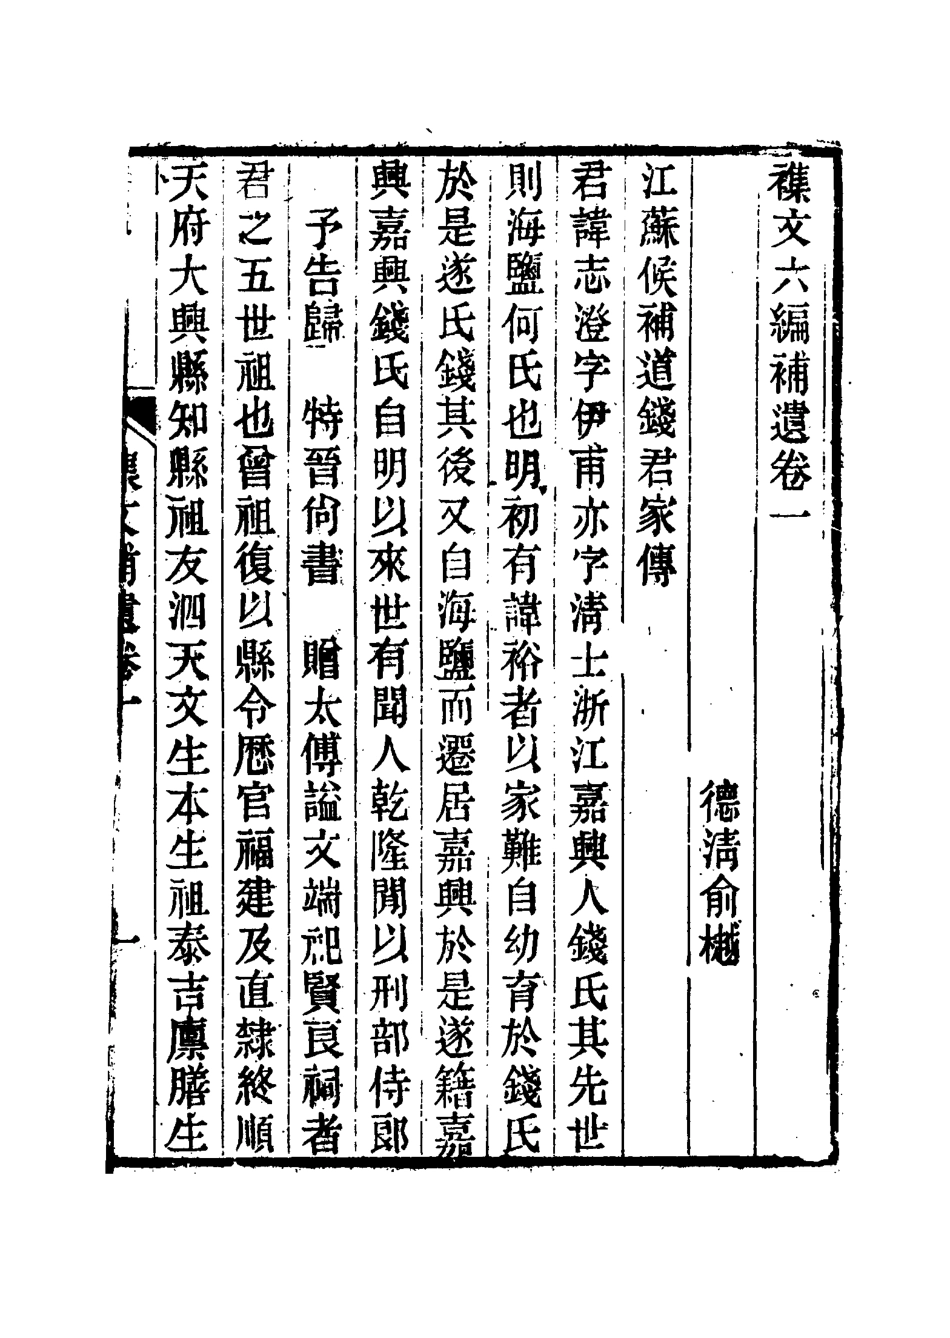 襍文六編補遺卷一
德淸俞樾
江蘇候補道錢君家傳
君諱志澄字伊甫亦字淸士浙江嘉興人錢氏其先世
則海鹽何氏也明初有諱裕者以家難自幼育於錢氏
於是遂氏錢其後又自海鹽而遷居嘉興於是遂籍嘉
興嘉興錢氏自明以來世有聞人乾隆閒以刑部侍郞
予告歸　特晉尙書　贈太傅謚文端祀賢良祠者
君之五世祖也曾祖復以縣令歷官福建及直隸終順
天府大興縣知縣祖友泗天文生本生祖泰吉廩膳生
文補遺卷一
一